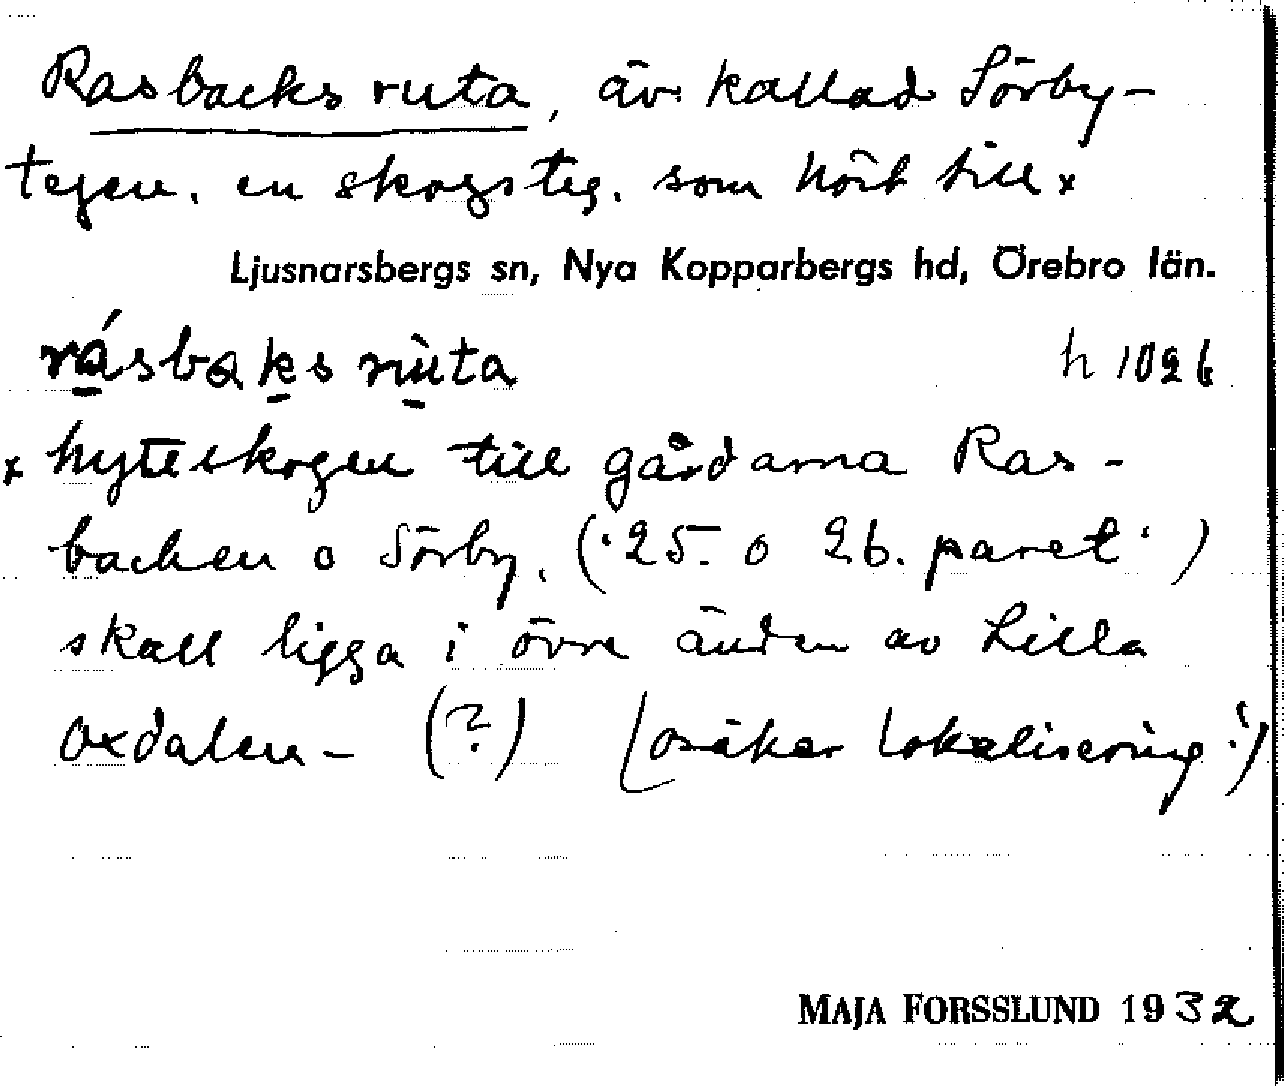 Rasbacks ruta, äv. kallad Sörby-
tegen, en skogsteg, som hört till x
Ljusnarsbergs sn, Nya Kopparbergs hd, Örebro län.
rásbaks ruta h 1026
x hytteskogen till gårdarna Ras-
backen o Sörby. ("25. o 26. paret")
skall ligga i övre änden av Lilla
Oxdalen – (?) (osäker lokalisering!)
MAJA FORSSLUND 1932